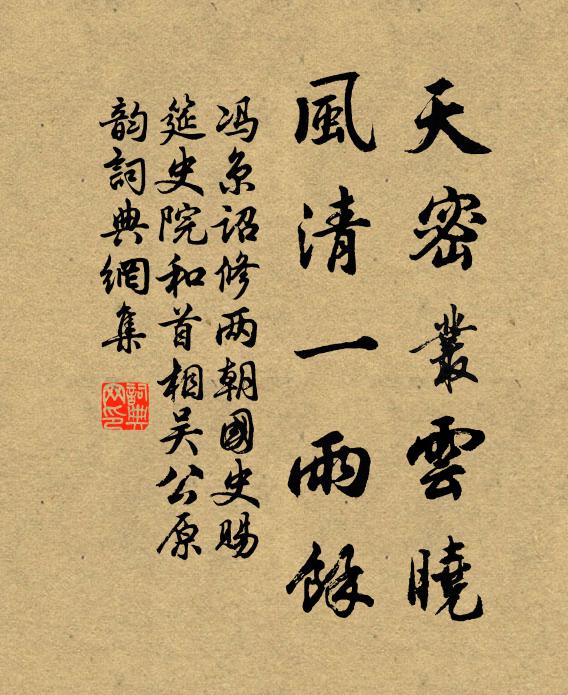 天密叢雲曉
風清一雨餘
冯京诏修两朝國史賜
筵史院和首相吴公原
韵詞典網集
詞典
网印